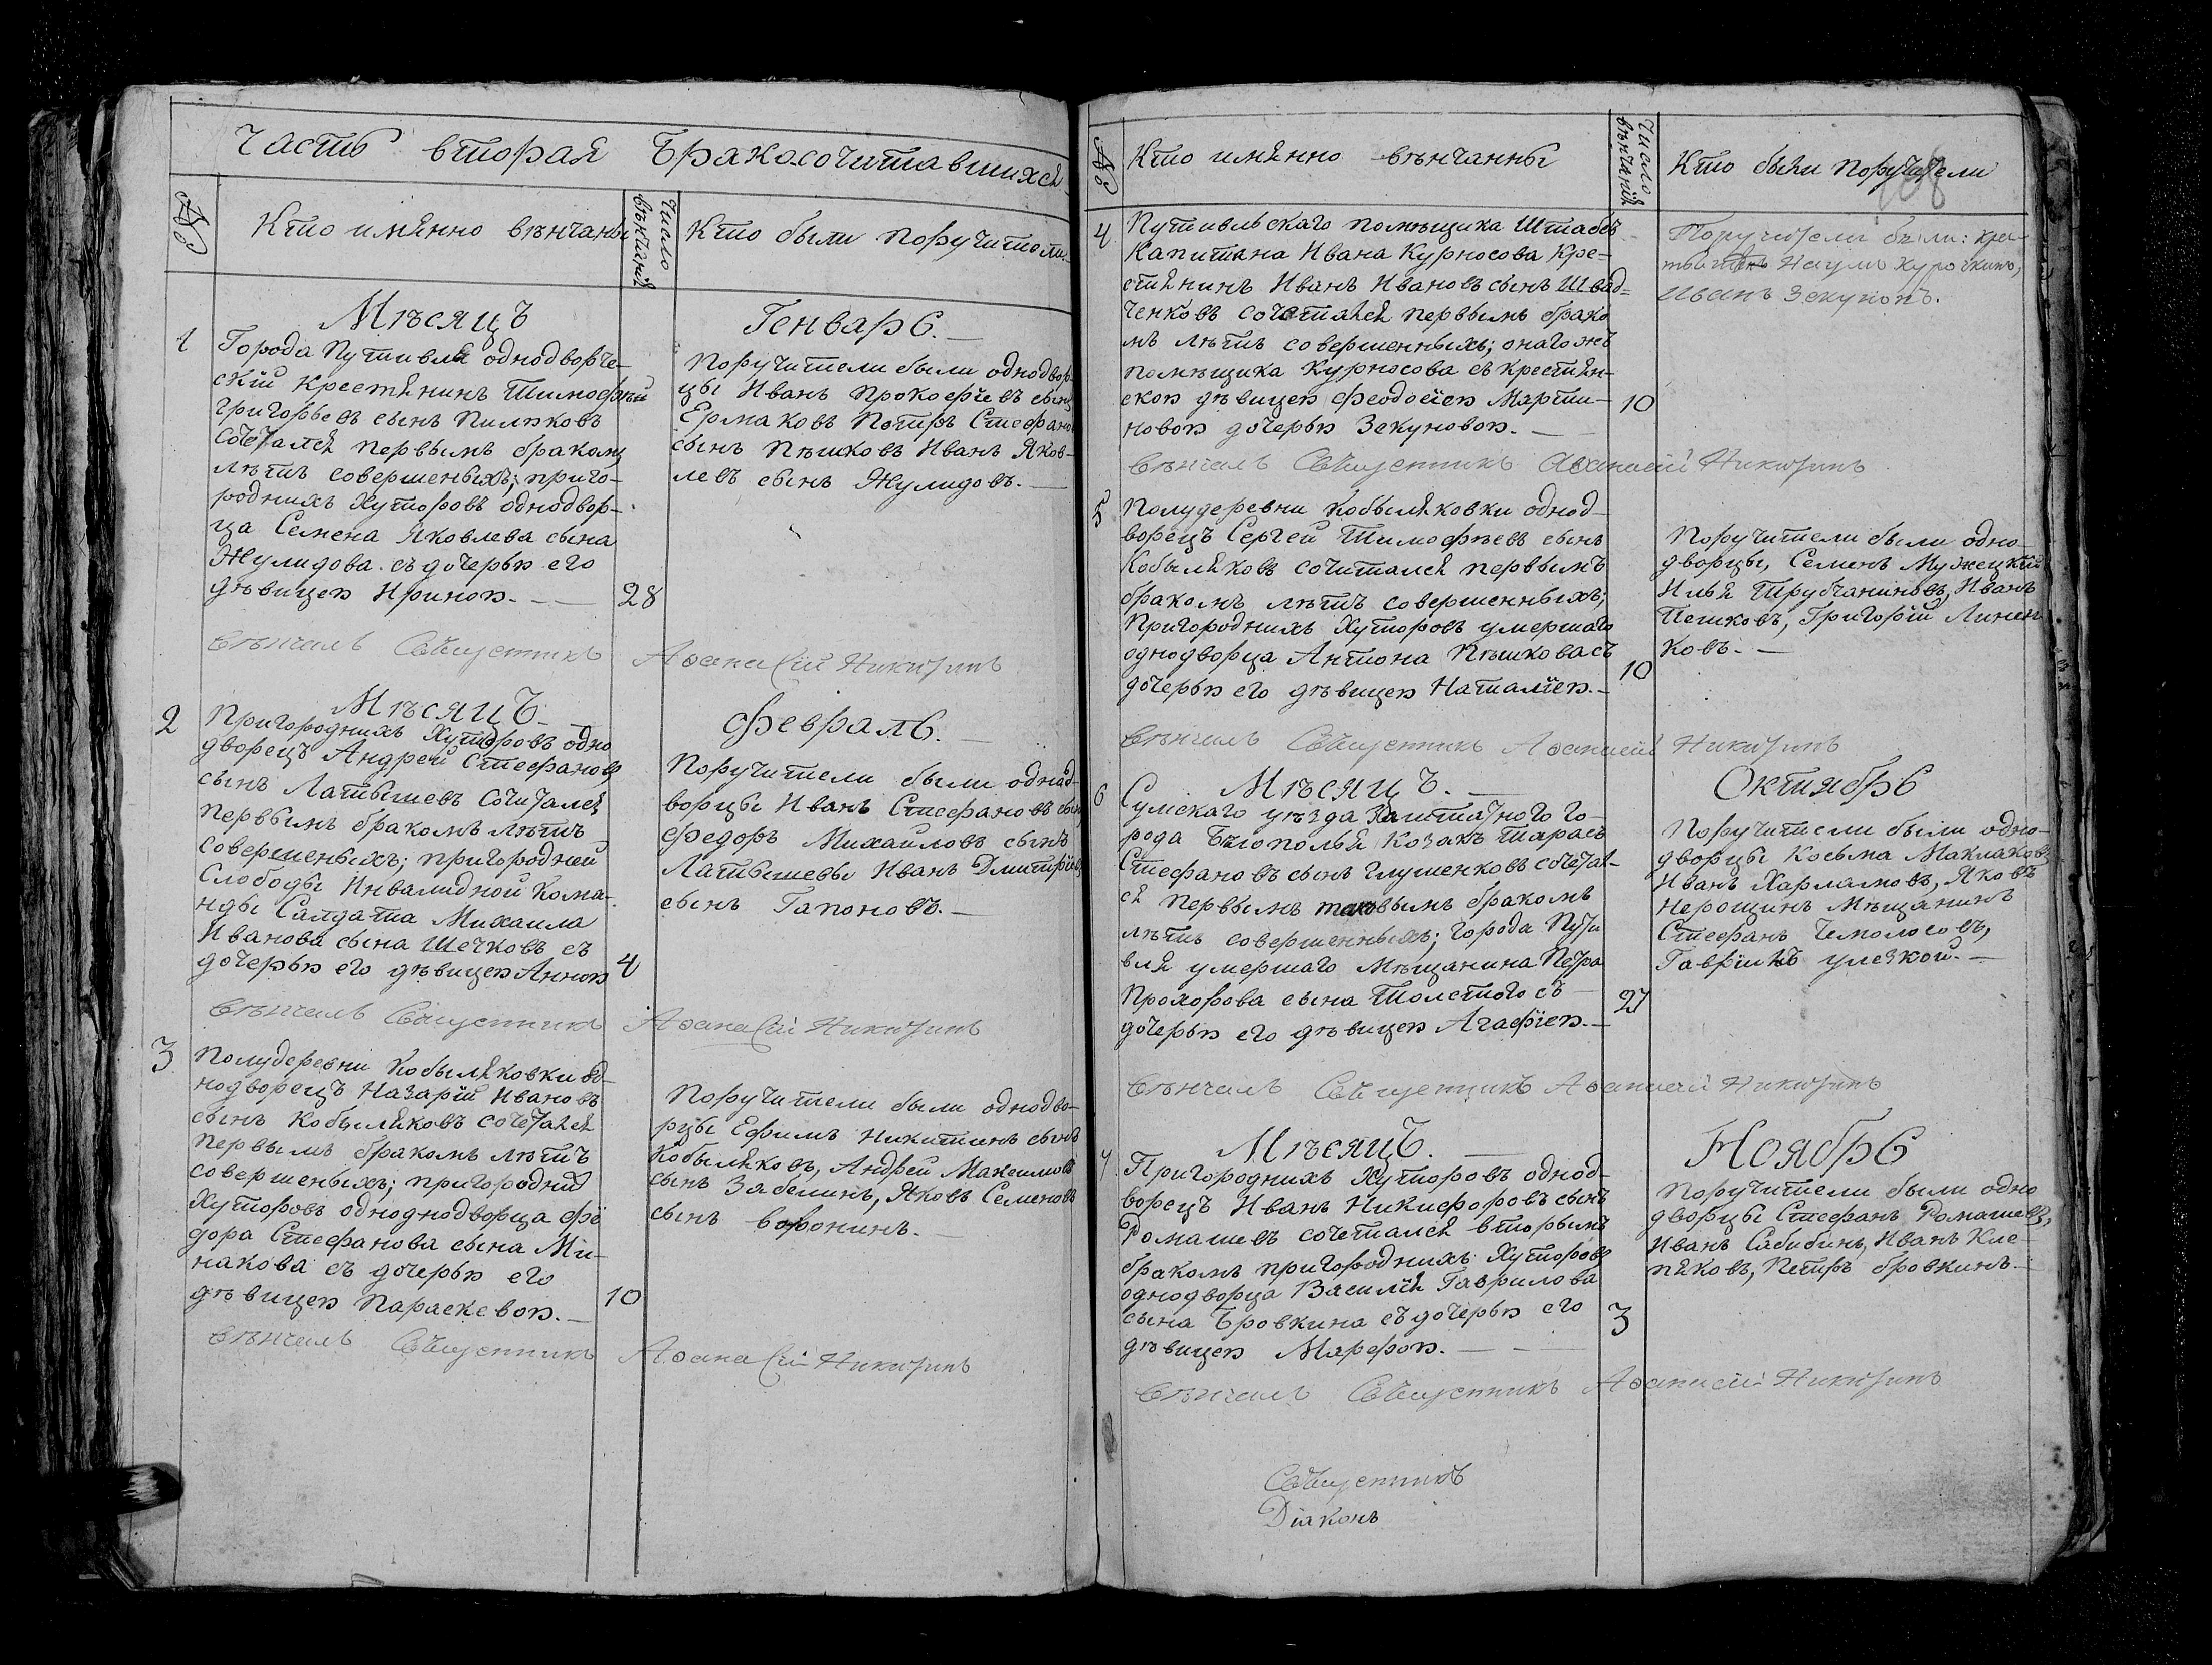 Часть вторая Бракосочитавшихся
№
Кто имянно вѣнчаны
Число вѣнчанія
Кто были поручители
Мѣсяцъ
Генварь.
1
Города Путивля однодворче-
скій крестянинъ Тимофѣй
Григорьевъ сынъ Пиляковъ
сочетался первымъ бракомъ
лѣтъ совершеныхъ; приго-
роднихъ Хуторовъ однодвор-
ца Семена Яковлева сына
Жулидова съ дочерью его
дѣвицею Ириною.
28
Поручители были однодвор-
цы Иванъ Прокофіевъ сынъ
Ермаковъ Петръ Стефановъ
сынъ Пѣшковъ Иванъ Яков-
левъ сынъ Жулидовъ.
Вѣнчалъ Священникъ Аѳанасій Никитинъ
Мѣсяцъ
Февраль.
2
Пригороднихъ Хуторовъ одно
дворецъ Андрей Стефановъ
сынъ Латышевъ сочитался
первымъ бракомъ лѣтъ
совершеныхъ; пригородней
Слободы Инвалидной Кома-
нды Салдата Михаила
Иванова сына Шечковъ съ
дочерью его дѣвицею Анною
4
Поручители были однад-
ворцы Иванъ Стефановъ сынъ
Федоръ Михаиловъ сынъ
Латышевы Иванъ Дмитріевъ
сынъ Гапоновъ.
Вѣнчалъ Священникъ Аѳанасій Никитинъ
3
Полудеревни Кобыляковки од-
нодворецъ Назарій Ивановъ
сынъ Кобыляковъ сочетался
первымъ бракомъ лѣтъ
совершеныхъ; пригородніхъ
Хуторовъ одноднодворца Фе
дора Стефанова сына Ми-
накова съ дочерью его
дѣвицею Параскевою.
10
Поручители были однодво-
рцы Ефимъ Никитинъ сынъ
Кобыляковъ, Андрей Максимовъ
сынъ Забелинъ, Яковъ Семеновъ
сынъ Воронинъ.
Вѣнчалъ Священникъ Аѳанасій Никитинъ
№
Кто имянно вѣнчанны
Число вѣнчанія
Кто были поручители
4
Путивльскаго помѣщика Штабсъ
Капитана Ивана Курносова Кре-
стянинъ Иванъ Ивановъ сынъ Швад-
ченковъ сочетался первымъ брако
мъ лѣтъ совершенныхъ; онагожъ
помѣщика Курносова съ крестян-
скою дѣвицею Феодосіею Марти-
новою дочерью Зекуновою.
10
Поручители были: кре-
Наумъ Курочкинъ,
Иванъ Зекунонъ.
Вѣнчалъ Священникъ Аѳанасій Никитинъ
5
Полудеревни Кобыляковки однод-
ворецъ Сергей Тимофѣевъ сынъ
Кобыляковъ сочитался первымъ
бракомъ лѣтъ совершенныхъ;
Пригороднихъ Хуторовъ умершаго
однодворца Антона Пѣшкова съ
дочерью его дѣвицею Наталіею.
10
Поручители были одно-
дворцы, Семенъ Мужецкій
Илья Трубчаниновъ, Иванъ
Пешковъ, Григорій Линен
ковъ.
Вѣнчалъ Священникъ Аѳанасій Никитинъ
Мѣсяцъ.
Октябрь
6
Сумскаго уѣзда Заштатного го-
рода Бѣлополья Козакъ Тарасъ
Стефановъ сынъ Глушенковъ сочетал-
ся первымъ таковымъ бракомъ
лѣтъ совершенныхъ; города Пути
вля умершаго Мѣщанина Петра
Прохорова сына Толстого съ
дочерью его дѣвицею Агафіею.
27
Поручители были одно-
дворцы Косьма Маклаковъ
Иванъ Харламовъ, Яковъ
Нерощинъ Мѣщанинъ
Стефанъ Чемолосовъ,
Гавріилъ улезкой.
Вѣнчалъ Священникъ Аѳанасій Никитинъ
Мѣсяцъ.
Ноябрь
7
Пригороднихъ Хуторовъ однод-
ворецъ Иванъ Никифоровъ сынъ
Ромашевъ сочетался вторымъ
бракомъ пригороднихъ Хуторовъ
однодворца Василія Гаврилова
сына Бровкина съ дочерью его
дѣвицею Марфою.
3
Поручители были одно
дворцы Стефанъ Ромашевъ,
Иванъ Сабибинъ, Иванъ Кле-
пяковъ, Петръ Бровкинъ.
Вѣнчалъ Священникъ Аѳанасій Никитинъ
Священникъ
Діаконъ